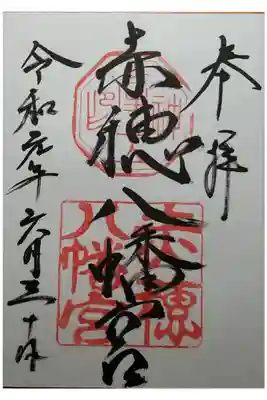 奉拝
赤穂八幡宮
令和元年六月三十日
赤穂
八幡宮